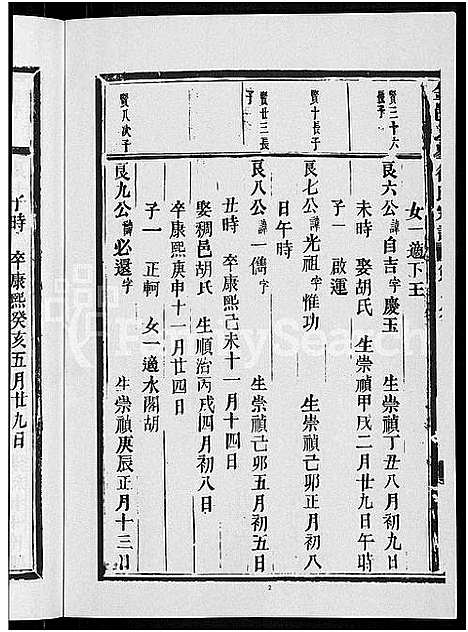 女一適下王
賢三十六
長子
良六公諱自吉字慶玉 生崇禎丁丑八月初九日
未時 娶胡氏 生崇禎甲戌二月廿九日午時
子一 啟運
賢十長子
良七公諱光祖字惟功 生崇禎己卯正月初八
日午時
賢廿三長
子
良八公諱一儁字 生崇禎己卯五月初五日
丑時 卒康熙己未十一月十四日
娶稠邑胡氏 生順治丙戌四月初八日
卒康熙庚申十一月廿四日
子一 正軻 女一適水閣胡
賢八次子
良九公諱必還字 生崇禎庚辰正月十三日
子時 卒康熙癸亥五月廿九日
2
FamilySearch